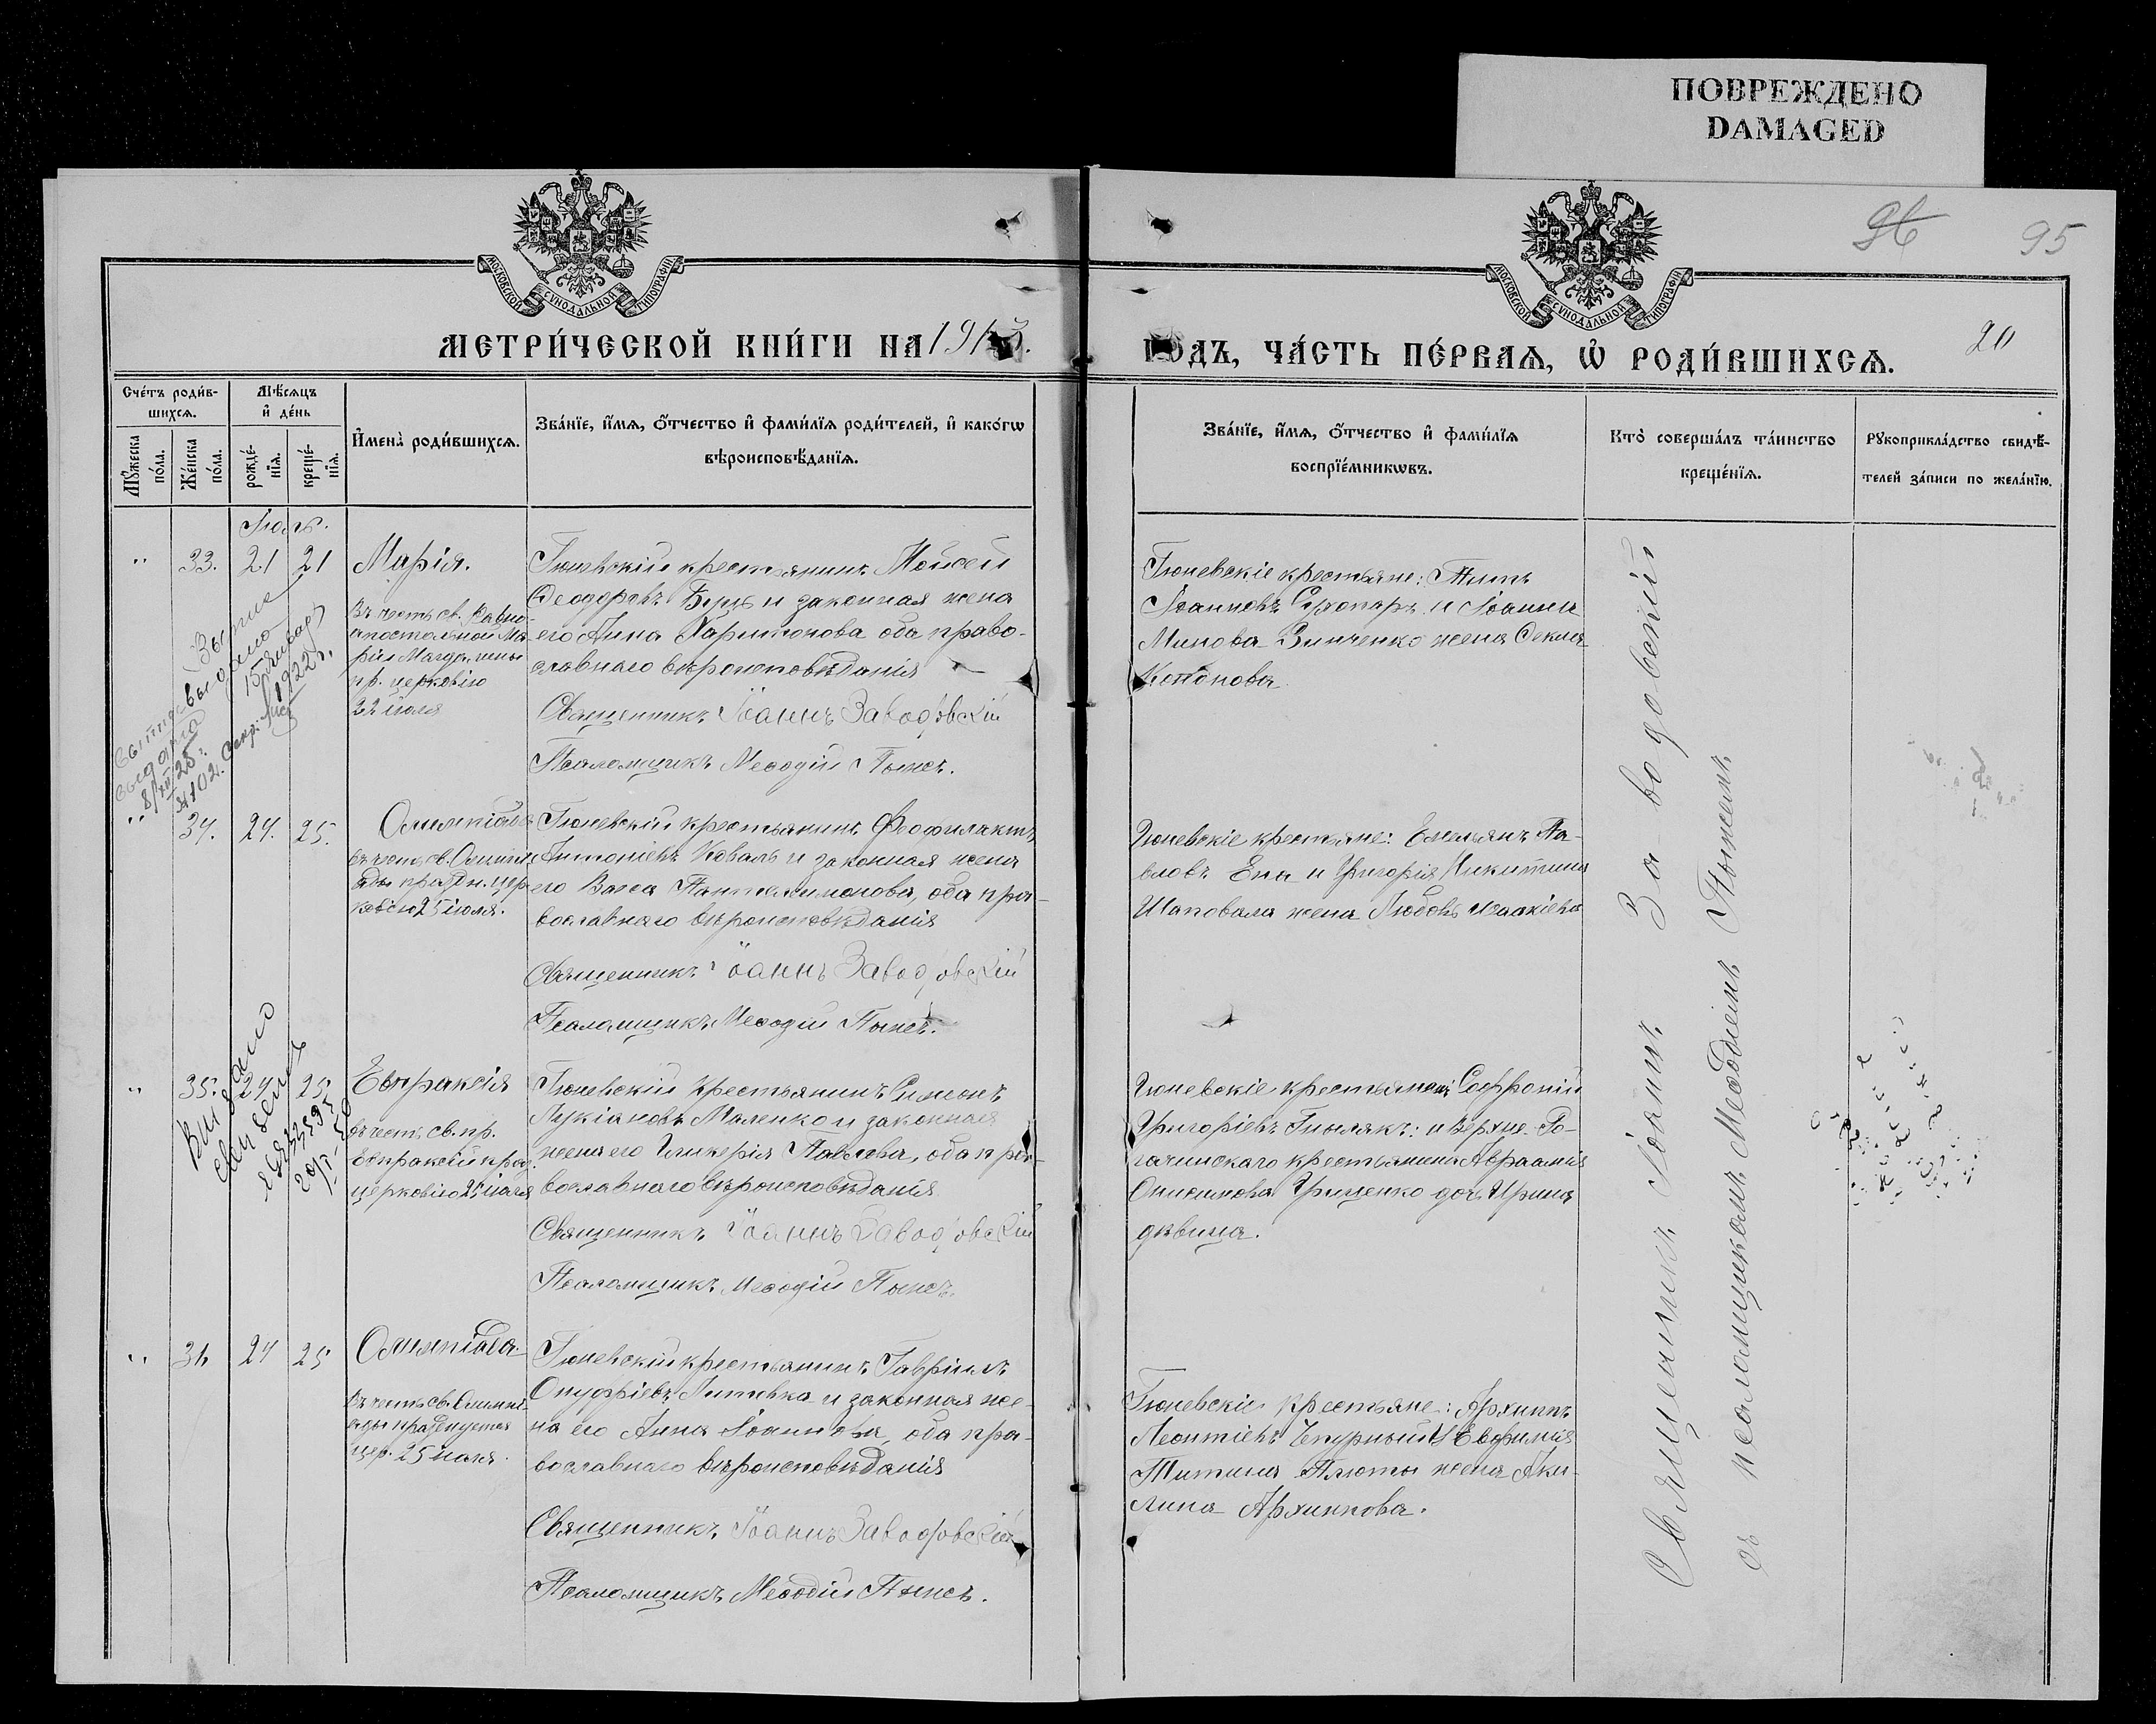 ПОВРЕЖДЕНО
DAMAGED
95
20
МОСКОВСКОЙ СѴНОДАЛЬНОЙ ТИПОГРАФІИ
МОСКОВСКОЙ СѴНОДАЛЬНОЙ ТИПОГРАФІИ
МЕТРИ́ЧЕСКОЙ КНИ́ГИ НА 1913.
ГОДЪ, ЧА́СТЬ ПЕ́РВАЯ, Ѽ РОДИ́ВШИХСѦ.
Сче́тъ роди́в-
шихсѧ.
Мѣ́сяцъ
и҆ де́нь
Мꙋ́жеска
по́ла.
Же́нска
по́ла.
рожде́-
нїѧ.
креще́-
нїѧ.
И҆мена̀ роди́вшихсѧ.
Зва́нїе, и҆́мѧ, ѻ҆́тчество и҆ фами́лїѧ роди́телей, и҆ како́гѡ
вѣроисповѣ́данїѧ.
Зва́нїе, и҆́мѧ, ѻ҆́тчество и҆ фами́лїѧ
воспрїе́мникѡвъ.
Кто̀ соверша́лъ та́инство
креще́нїѧ.
Рꙋкоприкла́дство свидѣ́-
телей за́писи по жела́нїю.
Іюль.
" 33. 21 21 Марія.
Въ честь св. Равно-
апостольной Ма-
ріи Магдалины
пр. церковію
22 іюля
Гюневскій крестьянинъ Мойсей
Ѳеодоровъ Буць и законная жена
его Анна Харитонова оба право-
славнаго вѣроисповѣданія
Священникъ Іоаннъ Заводовскій
Псаломщикъ Меѳодій Пынсъ.
Гюневскіе крестьяне: Титъ
Іоанновъ и Іоанна
Минова Зинченко жена Ѳекла
Кононова
выдано
15 января
1922 г.
выдана
8/XII 25 г.
№ 102.
" 34. 24. 25. Олимпіада
въ честь св. Олимпі-
ады праздн. цер-
ковію 25 іюля.
Гюневскій крестьянинъ Феофилактъ
Антоніевъ Коваль и законная жена
его Васса Пантелимонова, оба пра-
вославнаго вѣроисповѣданія
Священникъ Іоаннъ Заводовскій
Псаломщикъ Меѳодій Пынсъ.
Гюневскіе крестьяне: Емельянъ Па-
вловъ Ена и Григорія Никитина
Шаповала жена Любовь Исаакіева
" 35. 24 25 Евпраксія
въ честь св. пр.
Евпраксіи празд.
церковію 25 іюля
Гюневскій крестьянинъ Симонъ
Лукіановъ Маленко и законная
жена его Гликерія Павлова, оба пра-
вославнаго вѣроисповѣданія
Священникъ Іоаннъ Заводовскій
Псаломщикъ Меѳодій Пынсъ.
Гюневскіе крестьяне: Софроній
Григоріевъ Гнылякъ: и Верхне-Ро-
гачинскаго крестьянина Авраамія
Онисимова Грищенко дочь Ирина
дѣвица.
" 36 24 25 Олимпіада
Въ честь св. Олимпі-
ады празднуемая
цер. 25 іюля.
Гюневскій крестьянинъ Гавріилъ
Онуфріевъ Литовка и законная же-
на его Анна Іоаннова, оба пра-
вославнаго вѣроисповѣданія
Священникъ Іоаннъ Заводовскій
Псаломщикъ Меѳодій Пынсъ.
Гюневскіе крестьяне: Архиппъ
Леонтіевъ Чепурный и Евфимія
Титина Плюты жена Аки-
лина Архиппова.
Священникъ Іоаннъ Заводовскій
съ псаломщикомъ Меѳодіемъ Пынсомъ